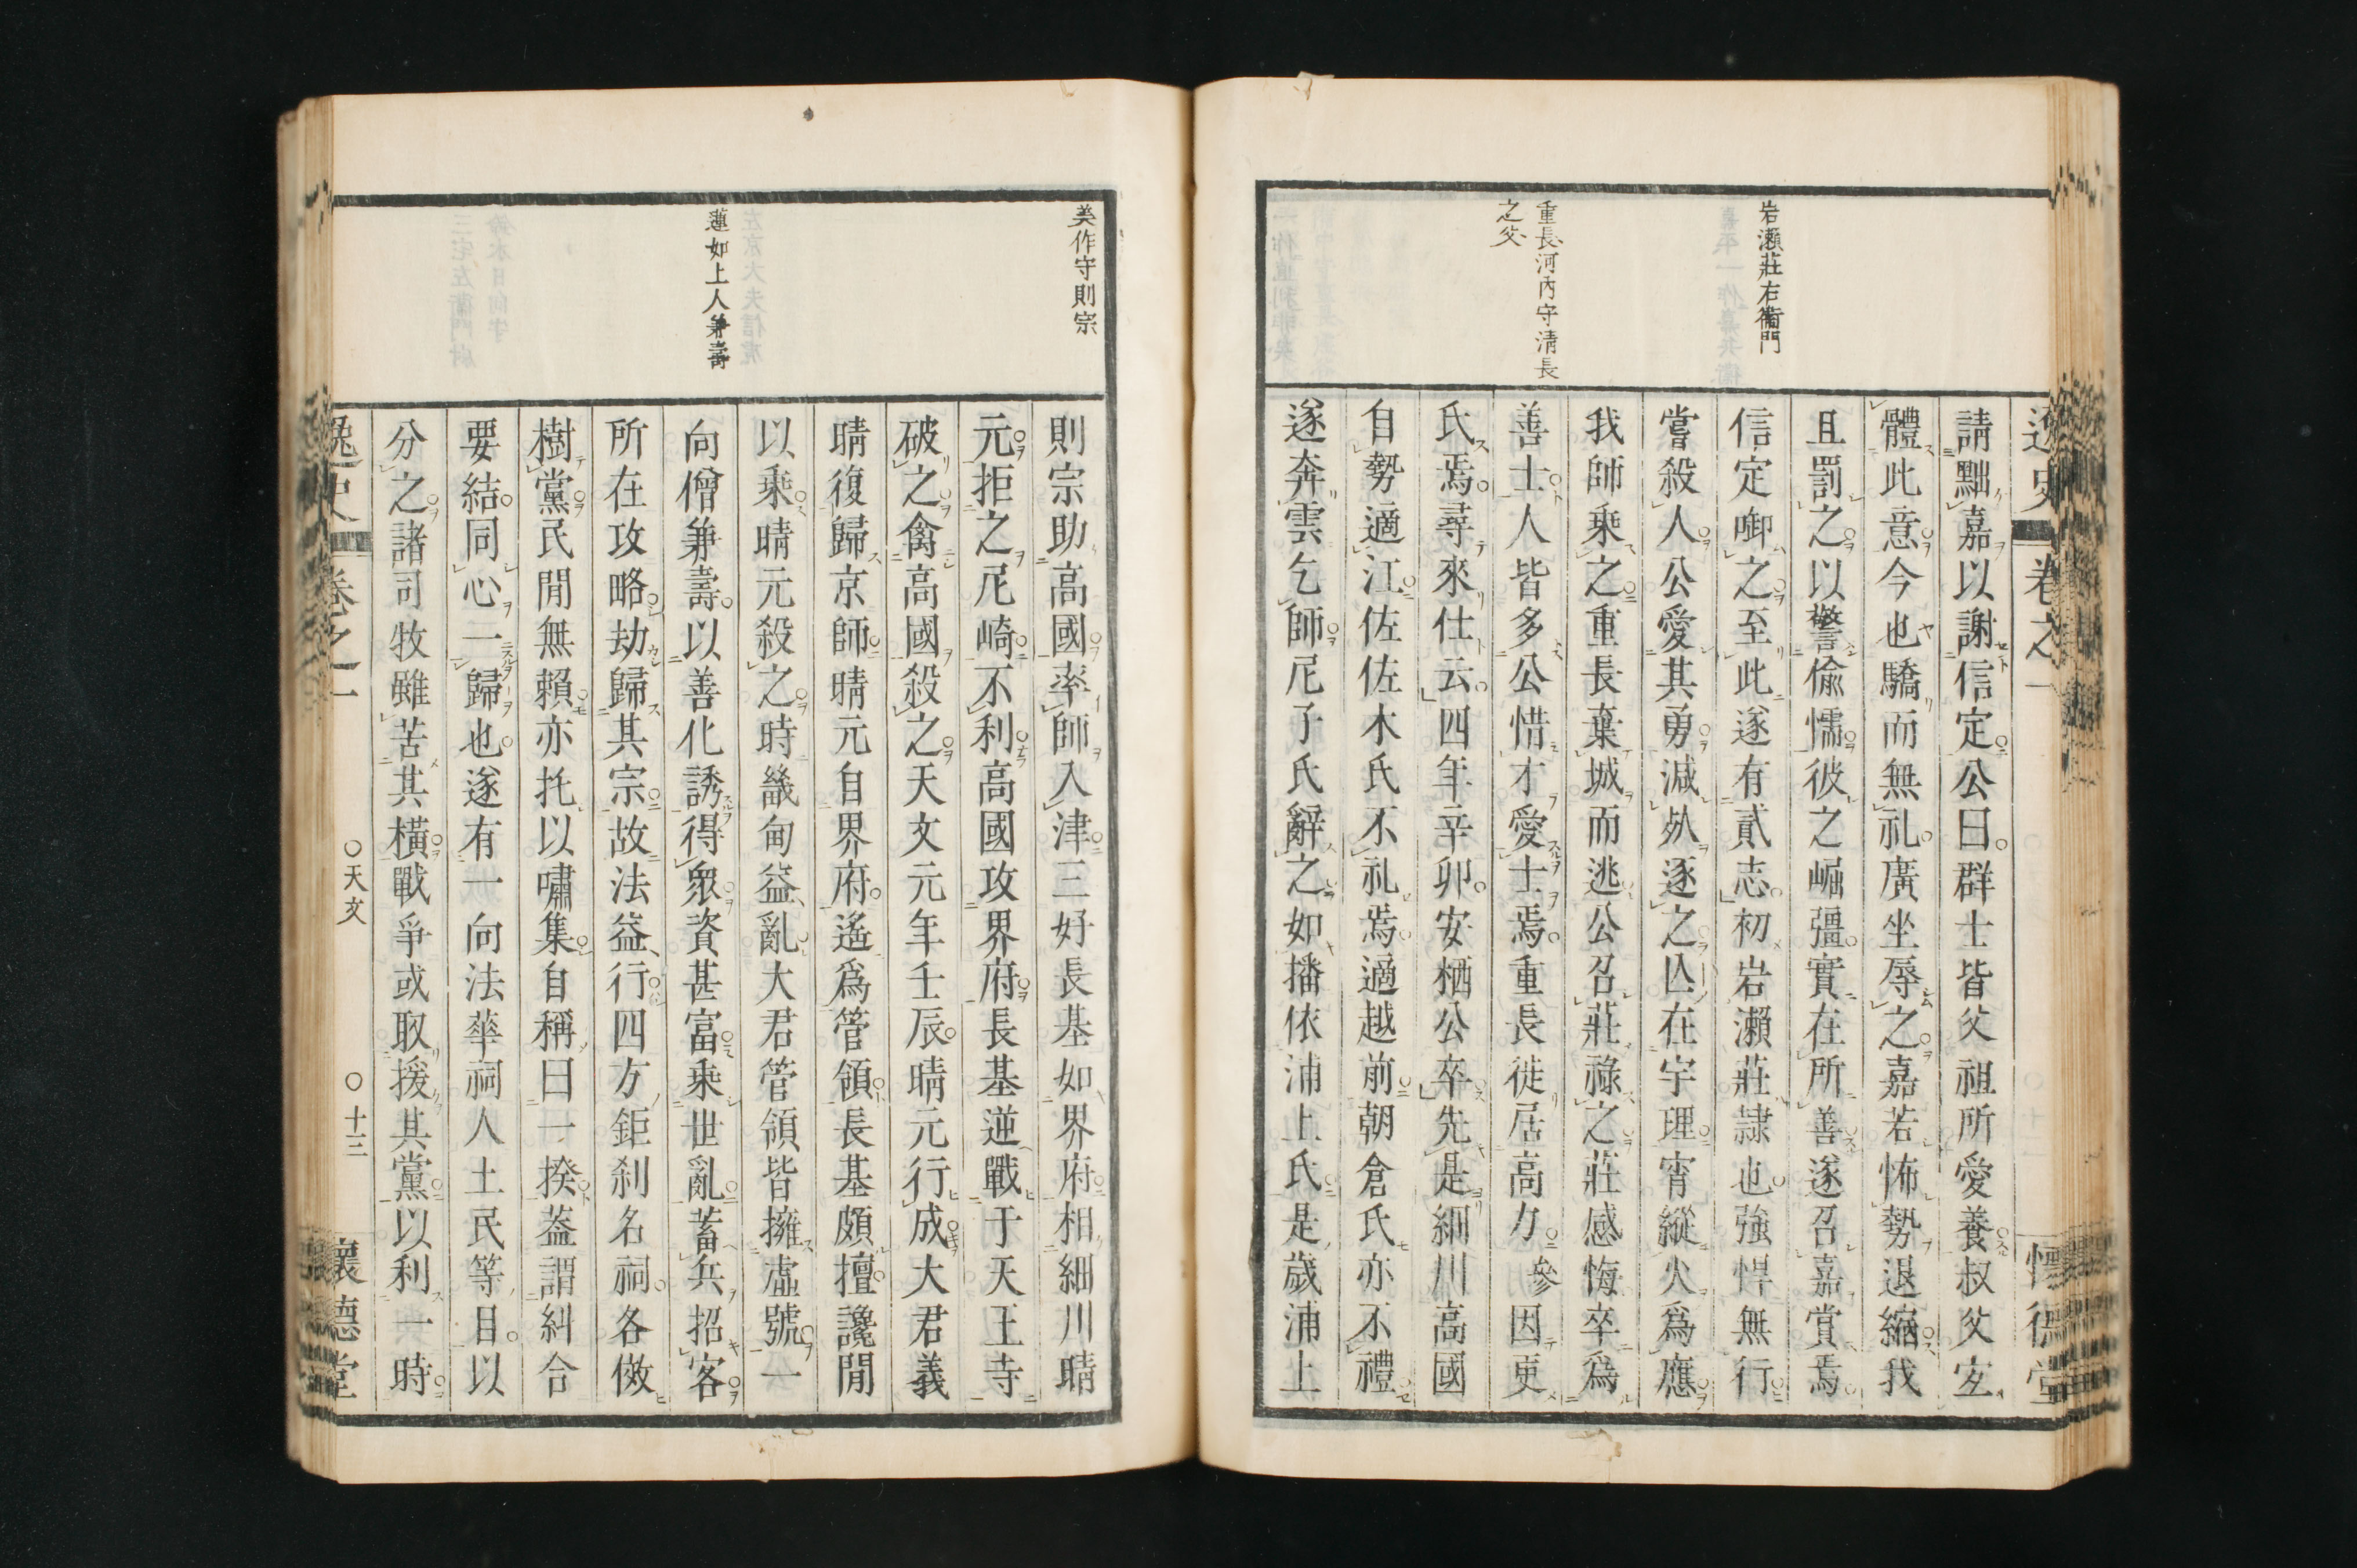 逸史
卷之一
懷德堂
岩瀨莊右衞門
重長河內守淸長
之父
請黜嘉以謝信定公曰群士皆父祖所愛養叔父宏
體此意今也驕而無礼廣坐辱之嘉若怖勢退縮我
且罰之以警偸懦彼之崛彊實在所善遂召嘉賞焉
信定啣之至此遂有貳志初岩瀨莊隷也強悍無行
嘗殺人公愛其勇減死逐之匿在宇理宵縱火爲應
我師乘之重長棄城而逃公召莊祿之莊感悔卒爲
善士人皆多公惜才愛士焉重長徙居高力參因更
氏焉尋來仕云四年辛卯安栖公卒先是細川高國
自勢適江佐佐木氏不礼焉適越前朝倉氏亦不禮
遂奔雲乞師尼子氏辭之如播依浦上氏是歲浦上
美作守則宗
蓮如上人兼壽
則宗助高國率師入津三好長基如界府相細川晴
元拒之尼崎不利高國攻界府長基逆戰于天王寺
破之禽高國殺之天文元年壬辰晴元行成大君義
晴復歸京師晴元自界府遙爲管領長基頗擅讒閒
以乘晴元殺之時畿甸益亂大君管領皆擁虛號一
向僧兼壽以善化誘得衆資甚富乘世亂蓄兵招客
所在攻略劫歸其宗故法益行四方鉅刹名祠各倣
樹黨民閒無賴亦托以嘯集自稱曰一揆蓋謂糾合
要結同心一歸也遂有一向法華祠人土民等目以
分之諸司牧雖苦其橫戰爭或取援其黨以利一時
逸史
卷之一
○天文
○十三
懷德堂